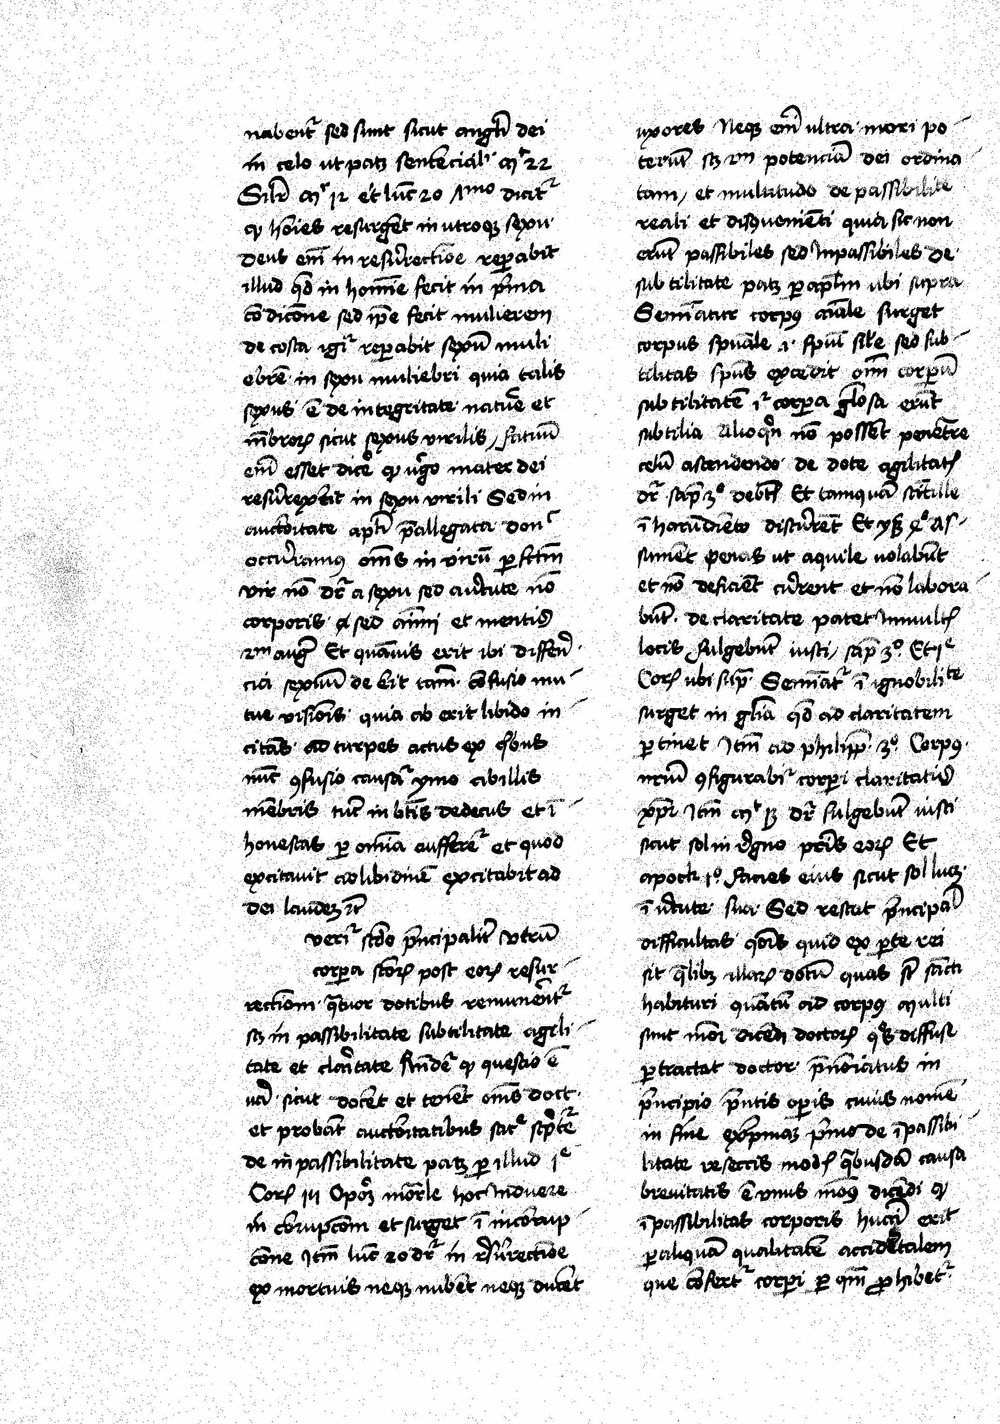 nabent~ sed sunt sicut angli dei
in celo ut patz sentencialr mt 22
Silr mt 12 et luc 20 ymo dicitr
q hoies resurget in utroqz sexu
deus em in resurrectioe reparabit
illud qd in homie fecit in prima
codicone sed ipe fecit mulierem
de costa igir reparabit sexu muli
ebre in sexu muliebri quia talis
sexus e de integritate nature et
mebrorz sicut sexus virilis / fatuu
em esset dice q vgo mater dei
resurrexerit in sexu virili Sed in
auctoritate apli preallegata donc
occurramus oms in viru perfctm
vir no dr a sexu sed a virtute no
corporis sed aimi et mentis
2m aug Et quamvis erit ibi differe
cia sexuu deerit tam cofusio mu
tue visiois quia ab erit libido in
citas ad turpes actus ex qbus
nuc 9fusio causar ymo ab illis
mebris tuc in btis dedecus et i
honestas per omia aufferer et quod
excitavit ad libidine excitabit ad
dei laudez rc
verir scdo principalitr utru
corpora scorz post eorz resur
rectiom qtuor dotibus remunerentr
sz in passibilitate subtilitate agili
tate et claritate Rnder q questio e
va sicut docet et tenet oms doct
et probat auctoritatibus sacre scpte
de in passibilitate patz per illud 1e
Corz 15 Oportz mortale hoc induere
in corrupcom et surget i incorrup
cone Itm luc 20 dr in resurrectioe
ex mortuis neqz nubent neqz ducent
uxores Neqz em ultra mori po
terut sz 2m potencia dei ordina
tam / et multitudo de passibilite
reali et disqvenienti quia sic non
erut passibiles sed Inpassibiles de
subtilitate patz per aplm ubi supra
Semiatur corpus aiale surget
corpus spuale .i. spui sile sed sub
tilitas spus excedit om corporu
subtilitate ir corpora glosa erut
subtilia Alioqn no possent penetre
celu ascendendo de dote agilitatz
dr sap 3o debts Et tamqua scintille
i harundineto discurrent Et ysa 40 As
sument penas ut aquile volabunt
et no deficient current et no labora
bunt de claritate patet In multz
locis fulgebunt iusti / sap 3o Et 1e
Corz ubi sup Semiatr i ignobilite
surget in glia qd ad claritatem
pertinet Itm ad philipp 3o Corpus
nrum 9figurabir corpori claritatis
xpi Itm mt 13 dr fulgebunt iusti
sicut sol in regno patris eorz Et
apock 1o Facies eius sicut sol lucz
i virtute sua Sed restat principal
difficultas qois quid ex parte rei
sit qlibz illarz dotu quas st sancti
habituri quatu ad corpus multi
sunt modi dicendi doctorz qs diffuse
pertractat doctor prenoiatus in
principio pritis operis cuius nome
in fine exprimaz primo de ipassibi
litate resectis modz qbusda causa
brevitatis e unus modus dicedi q
ipassibilitas corporis humai erit
per aliqua qualitate accidetalem
que cofertr corpori per qm prohibetr